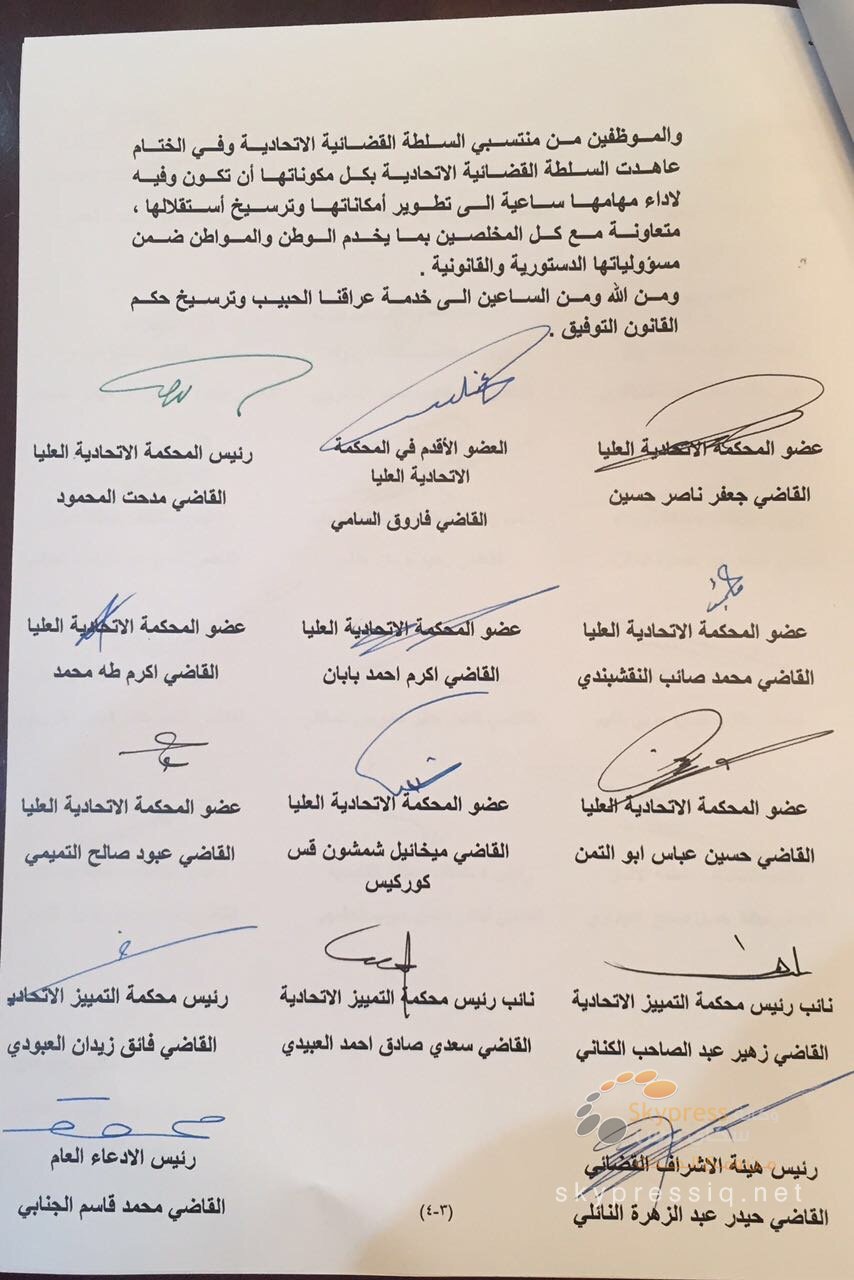 والموظفين من منتسبي السلطة القضائية الاتحادية وفي الختام
عاهدت السلطة القضائية الاتحادية بكل مكوناتها أن تكون وفيه
لاداء مهامها ساعية الى تطوير أمكاناتها وترسيخ أستقلالها ،
متعاونة مع كل المخلصين بما يخدم الوطن والمواطن ضمن
مسؤولياتها الدستورية والقانونية .
ومن الله ومن الساعين الى خدمة عراقنا الحبيب وترسيخ حكم
القانون التوفيق .
عضو المحكمة الاتحادية العليا
القاضي جعفر ناصر حسين
العضو الأقدم في المحكمة
الاتحادية العليا
القاضي فاروق السامي
رئيس المحكمة الاتحادية العليا
القاضي مدحت المحمود
عضو المحكمة الاتحادية العليا
القاضي محمد صائب النقشبندي
عضو المحكمة الاتحادية العليا
القاضي اكرم احمد بابان
عضو المحكمة الاتحادية العليا
القاضي اكرم طه محمد
عضو المحكمة الاتحادية العليا
القاضي حسين عباس ابو التمن
عضو المحكمة الاتحادية العليا
القاضي ميخائيل شمشون قس
كوركيس
عضو المحكمة الاتحادية العليا
القاضي عبود صالح التميمي
نائب رئيس محكمة التمييز الاتحادية
القاضي زهير عبد الصاحب الكناني
نائب رئيس محكمة التمييز الاتحادية
القاضي سعدي صادق احمد العبيدي
رئيس محكمة التمييز الاتحادية
القاضي فائق زيدان العبودي
رئيس هيئة الاشراف القضائي
القاضي حيدر عبد الزهرة النائلي
رئيس الادعاء العام
القاضي محمد قاسم الجنابي
(٣-٤)
Skypress
skypressiq.net